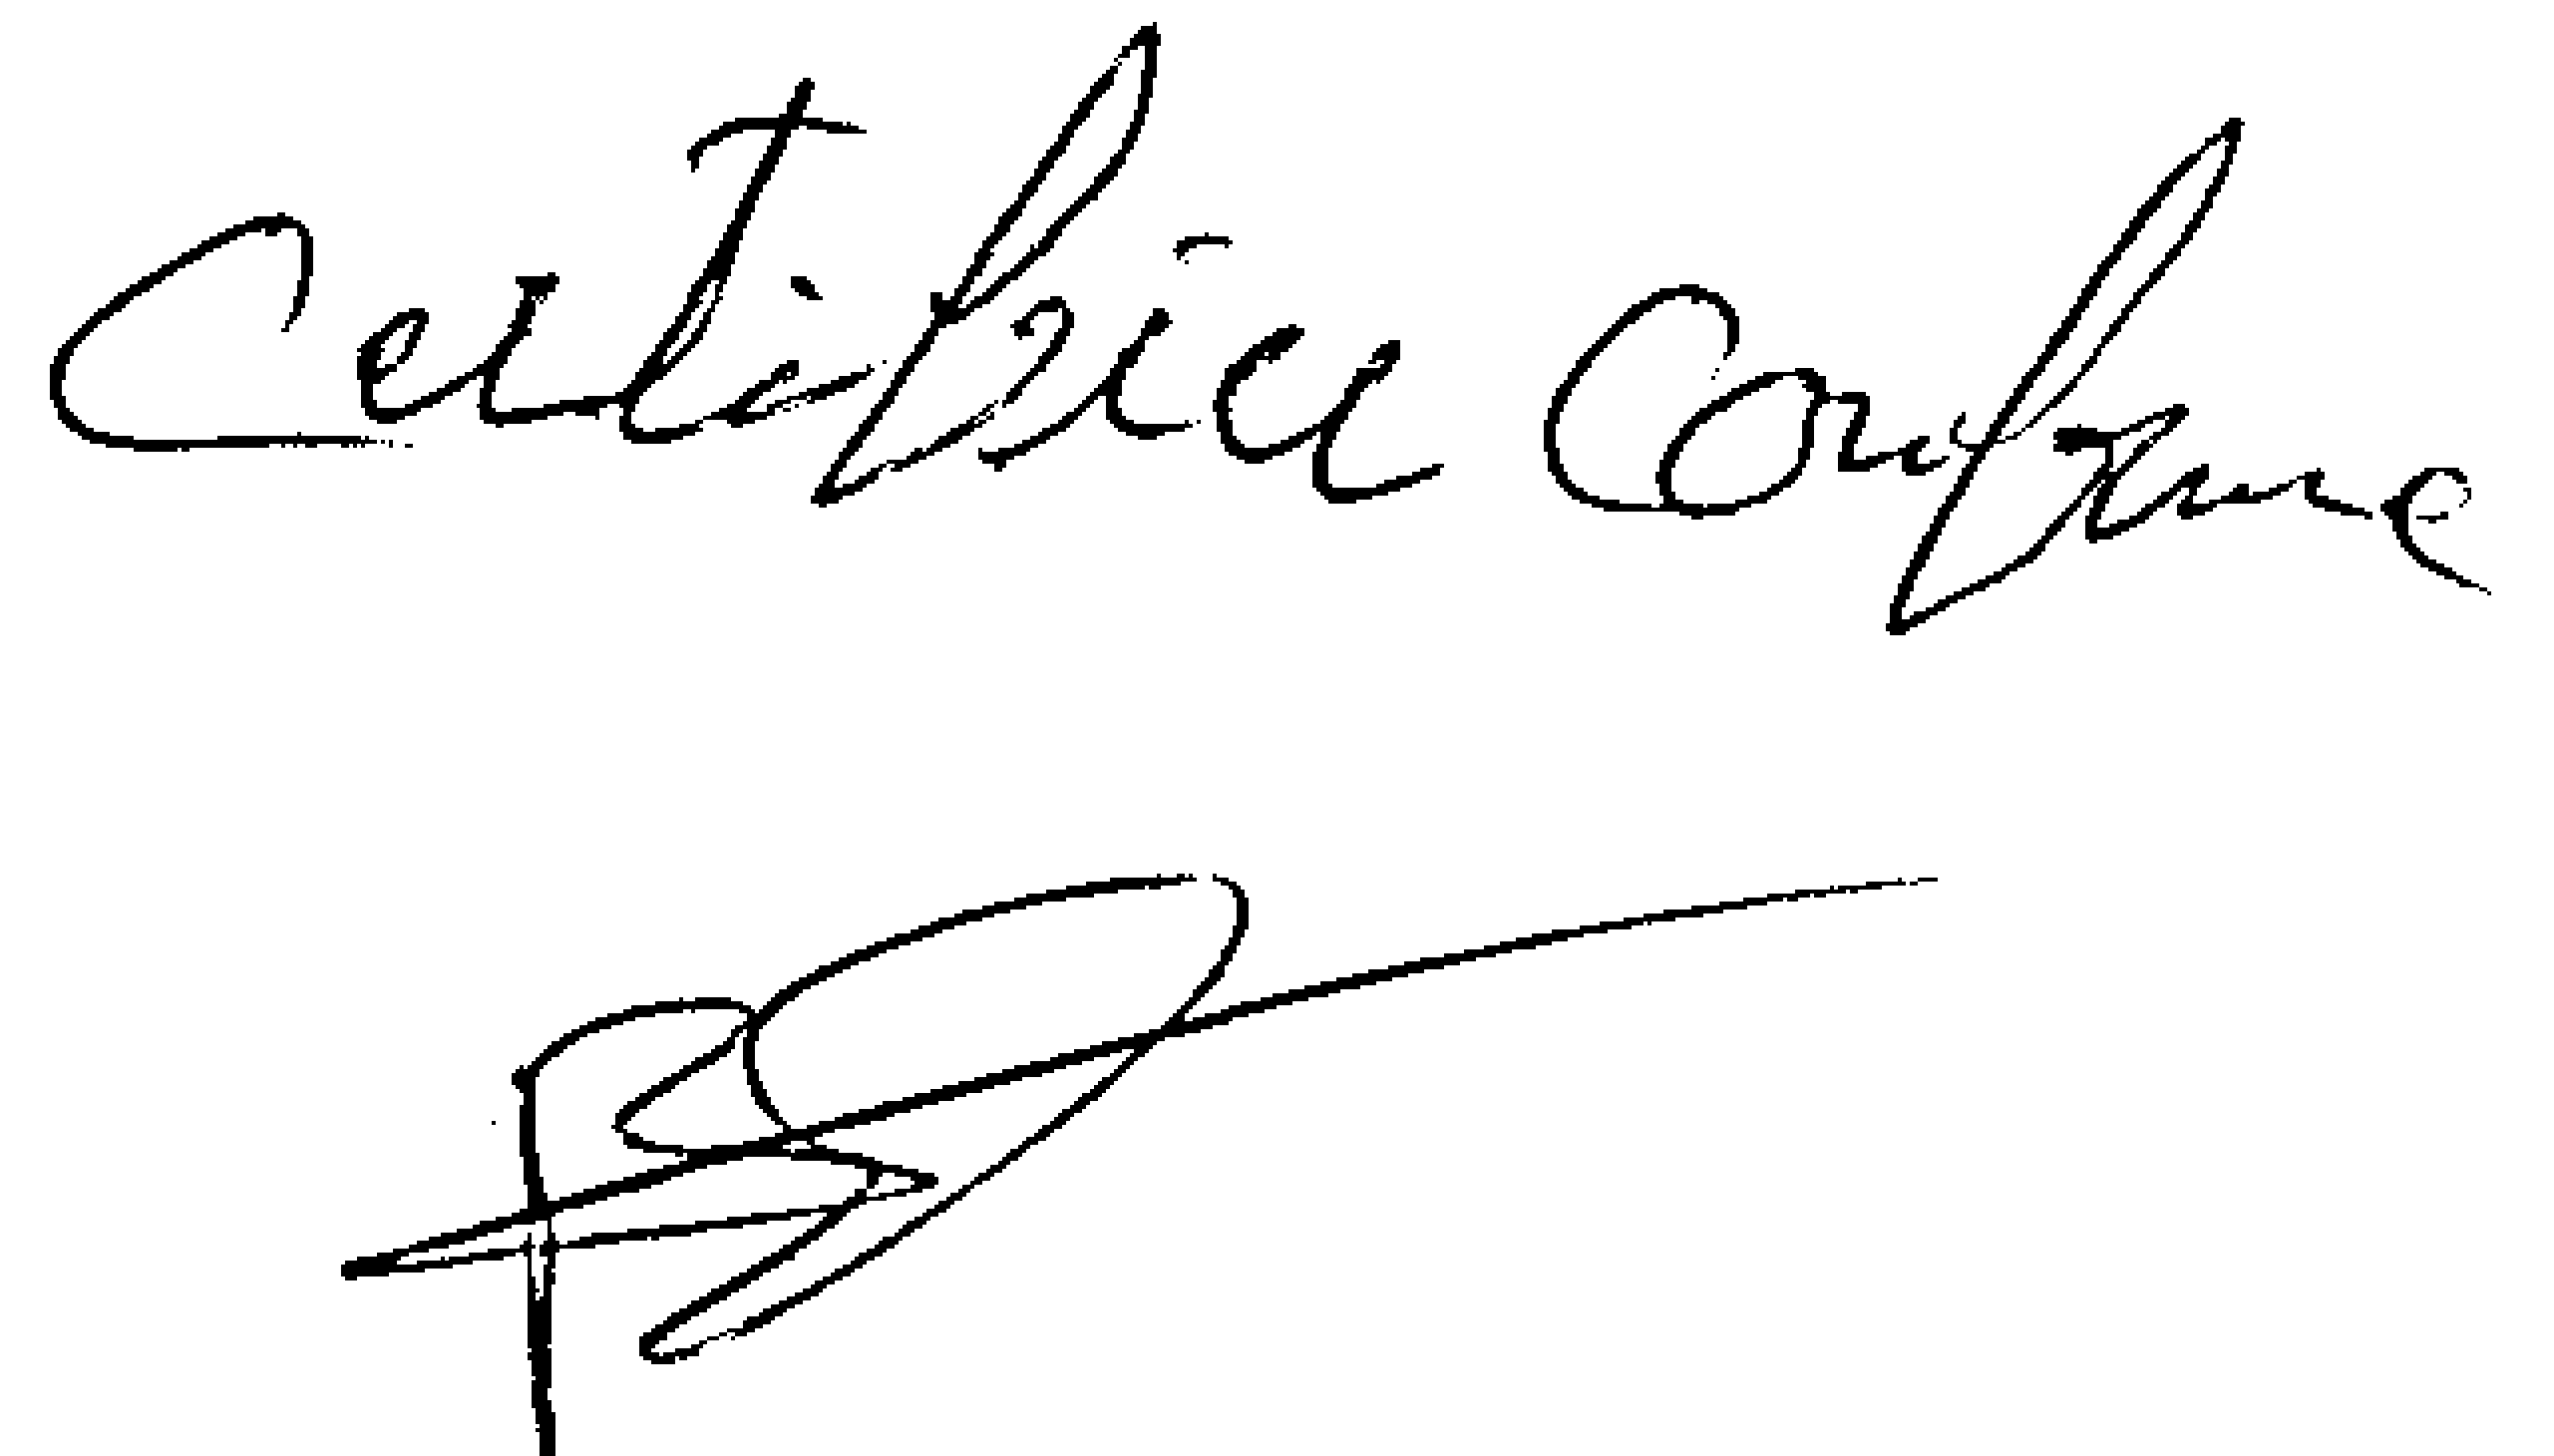 Certifiée Conforme